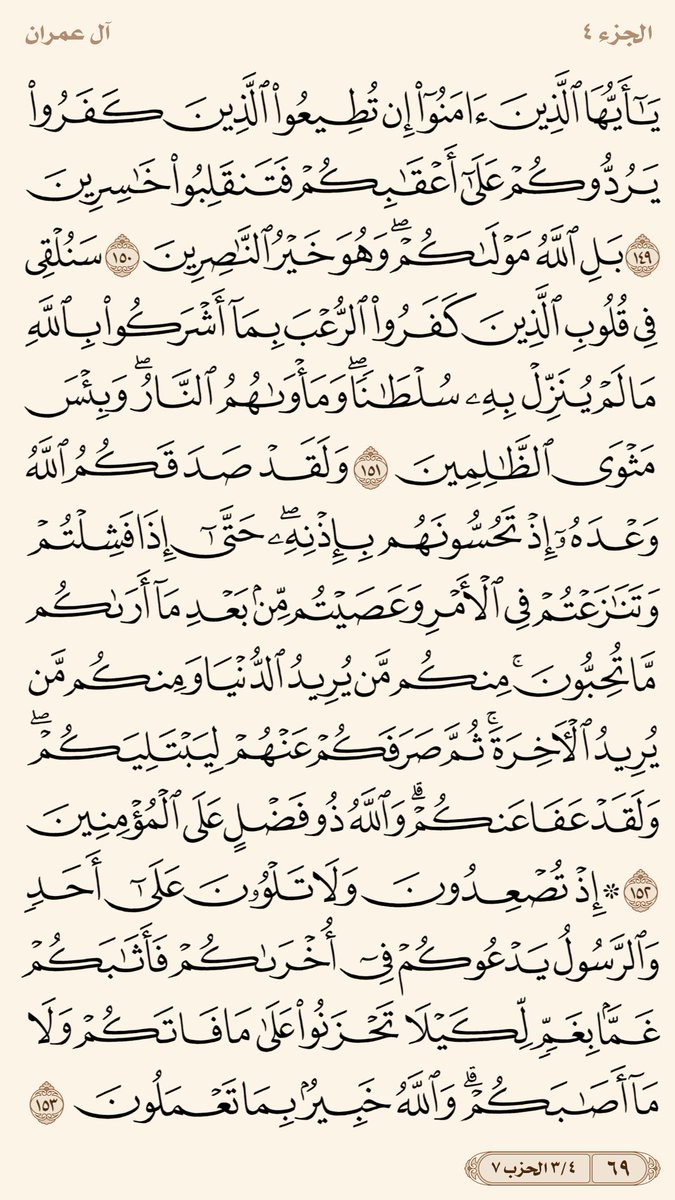 الجزء ٤
آل عمران
يَـٰٓأَيُّهَا ٱلَّذِينَ ءَامَنُوٓا۟ إِن تُطِيعُوا۟ ٱلَّذِينَ كَفَرُوا۟
يَرُدُّوكُمْ عَلَىٰٓ أَعْقَـٰبِكُمْ فَتَنقَلِبُوا۟ خَـٰسِرِينَ
١٤٩ بَلِ ٱللَّهُ مَوْلَىٰكُمْ ۖ وَهُوَ خَيْرُ ٱلنَّـٰصِرِينَ ١٥٠ سَنُلْقِى
فِى قُلُوبِ ٱلَّذِينَ كَفَرُوا۟ ٱلرُّعْبَ بِمَآ أَشْرَكُوا۟ بِٱللَّهِ
مَا لَمْ يُنَزِّلْ بِهِۦ سُلْطَـٰنًا ۖ وَمَأْوَىٰهُمُ ٱلنَّارُ ۖ وَبِئْسَ
مَثْوَى ٱلظَّـٰلِمِينَ ١٥١ وَلَقَدْ صَدَقَكُمُ ٱللَّهُ
وَعْدَهُۥٓ إِذْ تَحُسُّونَهُم بِإِذْنِهِۦ ۖ حَتَّىٰٓ إِذَا فَشِلْتُمْ
وَتَنَـٰزَعْتُمْ فِى ٱلْأَمْرِ وَعَصَيْتُم مِّنۢ بَعْدِ مَآ أَرَىٰكُم
مَّا تُحِبُّونَ ۚ مِنكُم مَّن يُرِيدُ ٱلدُّنْيَا وَمِنكُم مَّن
يُرِيدُ ٱلْـَٔاخِرَةَ ۚ ثُمَّ صَرَفَكُمْ عَنْهُمْ لِيَبْتَلِيَكُمْ ۖ
وَلَقَدْ عَفَا عَنكُمْ ۗ وَٱللَّهُ ذُو فَضْلٍ عَلَى ٱلْمُؤْمِنِينَ
١٥٢ * إِذْ تُصْعِدُونَ وَلَا تَلْوُۥنَ عَلَىٰٓ أَحَدٍ
وَٱلرَّسُولُ يَدْعُوكُمْ فِىٓ أُخْرَىٰكُمْ فَأَثَـٰبَكُمْ
غَمًّۢا بِغَمٍّ لِّكَيْلَا تَحْزَنُوا۟ عَلَىٰ مَا فَاتَكُمْ وَلَا
مَآ أَصَـٰبَكُمْ ۗ وَٱللَّهُ خَبِيرٌۢ بِمَا تَعْمَلُونَ ١٥٣
٦٩
٣/٤ الحزب ٧